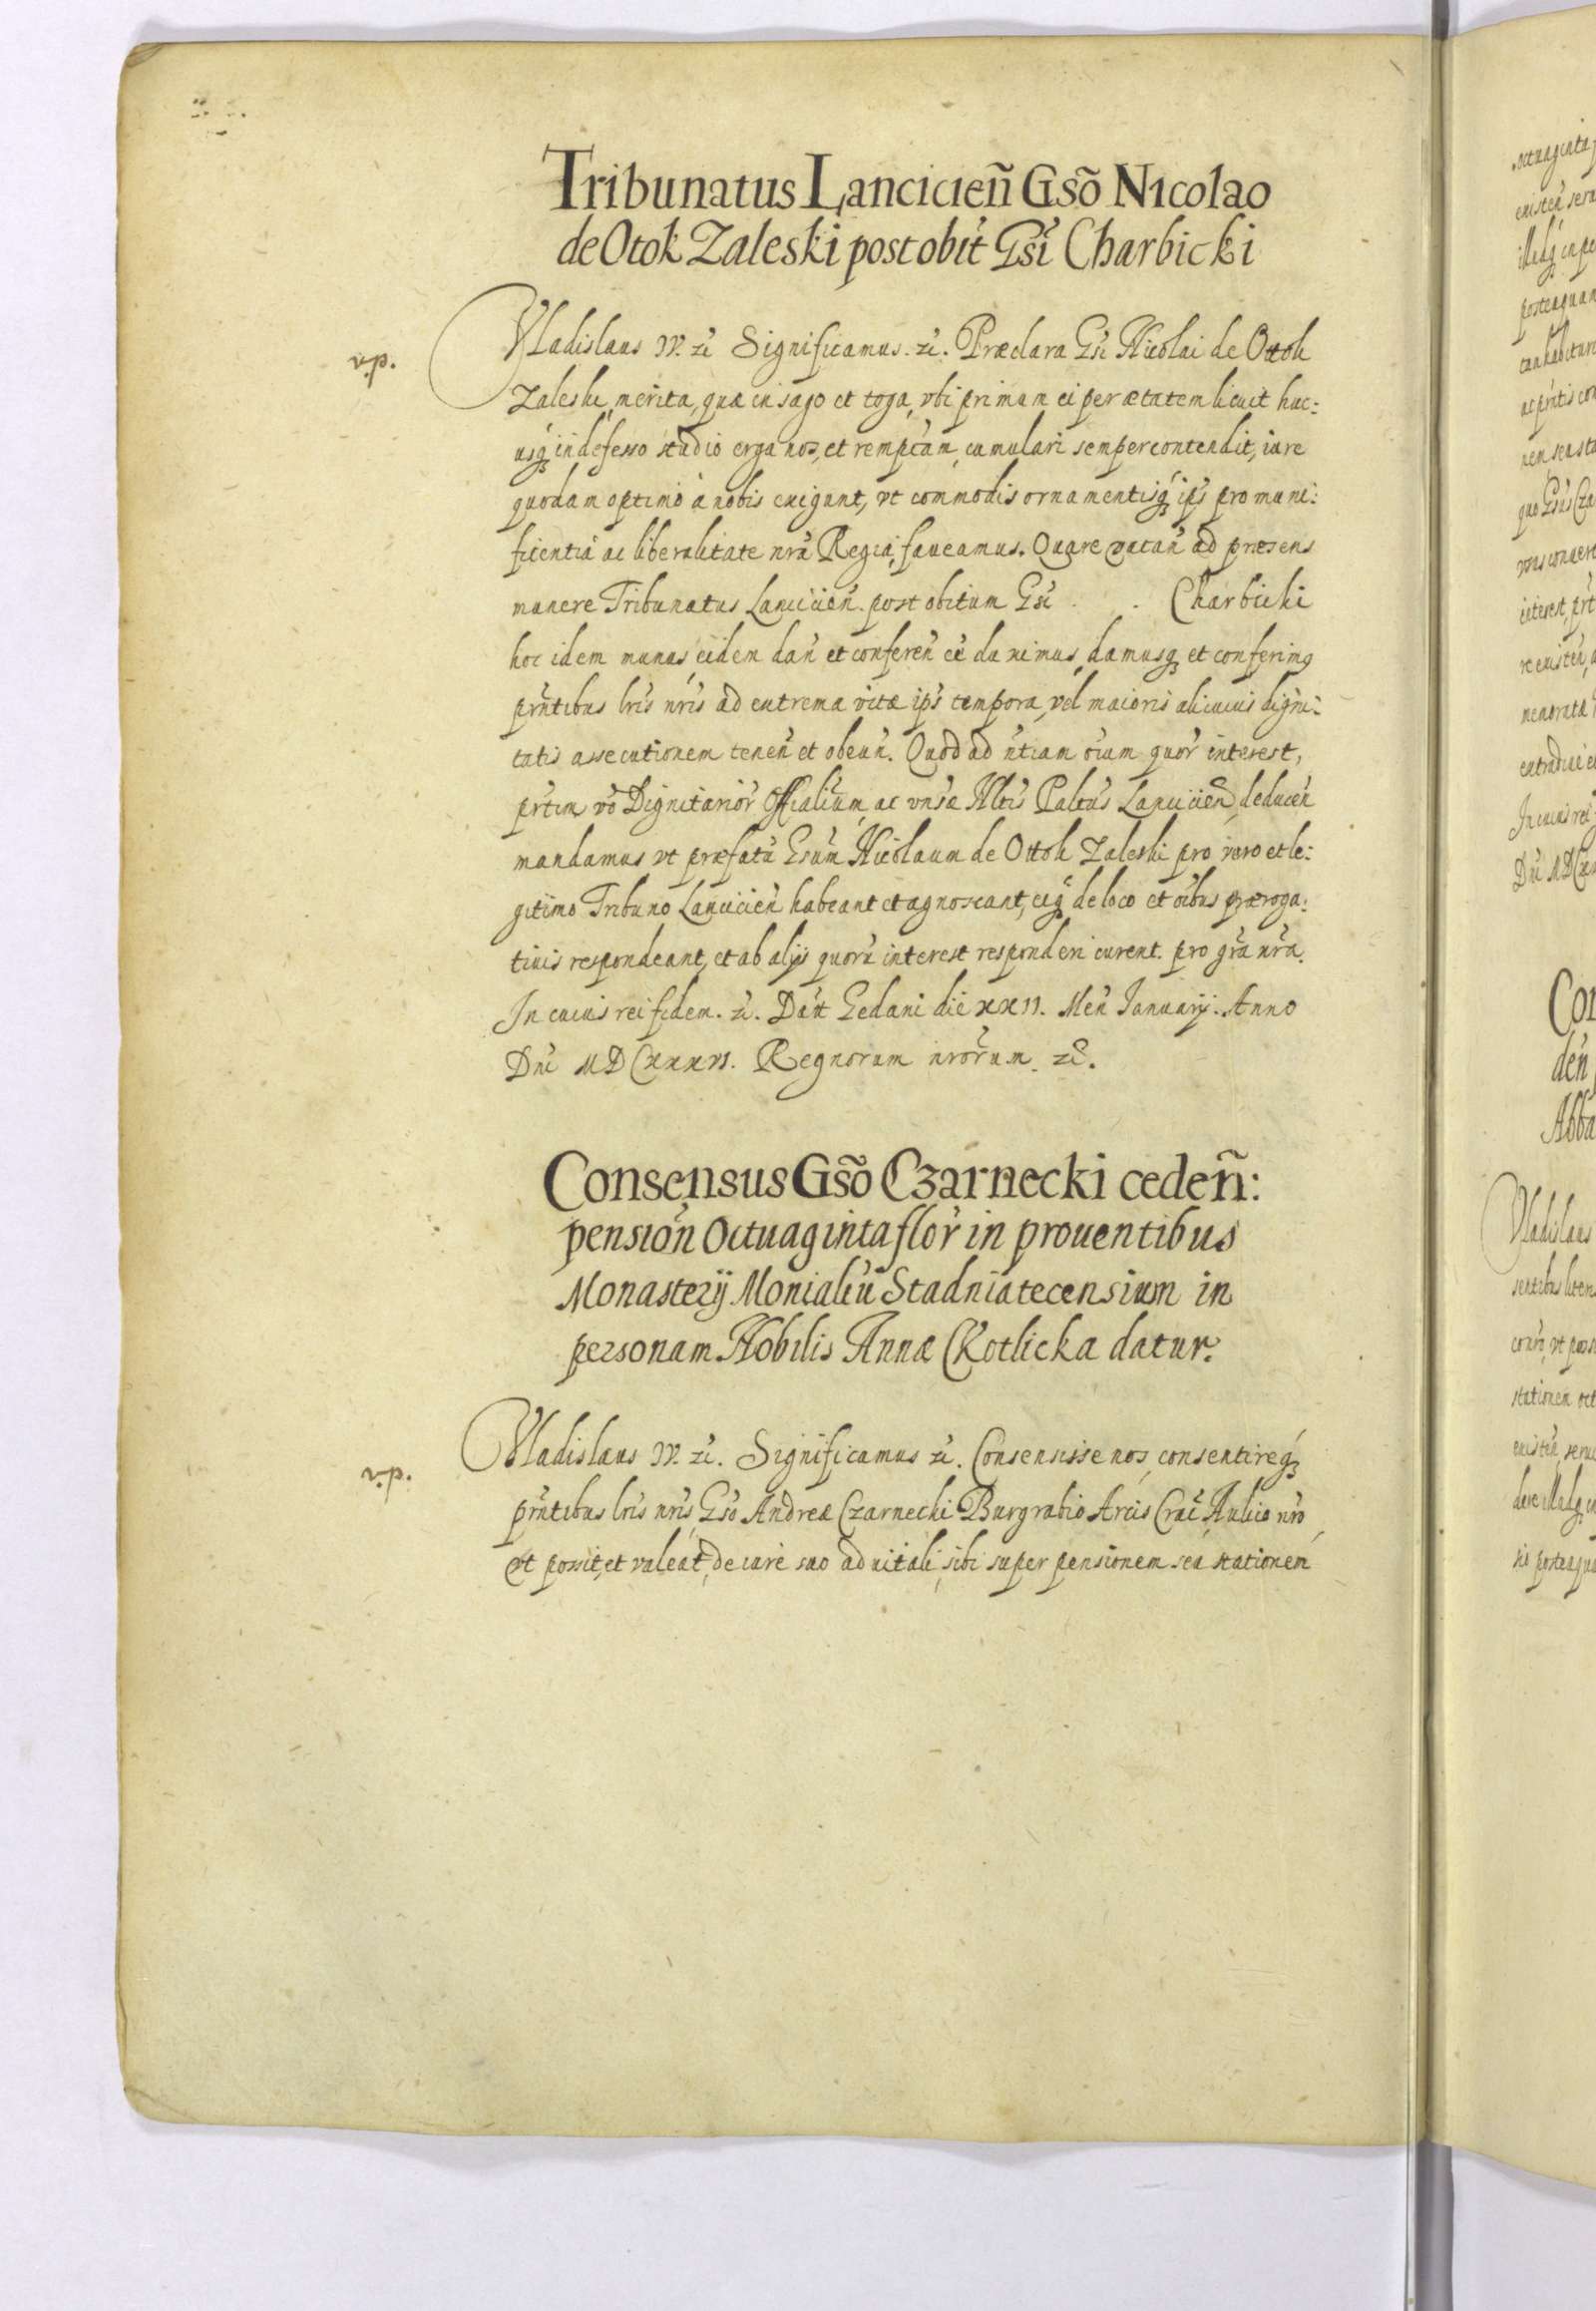 Tribunatus Lancicien̄ Gsō Nicolao
de Otok Zaleski post obit̄ Gsī Charbicki
Vladislaus IV. zc̄ Significamus. zc̄. Præclara Gsi Nicolai de Ottok
Zaleski merita, quæ in sago et toga, vbi primum ei per ætatem licuit huc:
usq́ indefesso studio erga nos, et rempcam, cumulari semper contendit, iure
quodam optimo à nobis exigunt, vt commodis ornamentisq́ ips̄ pro muni:
ficentia ac liberalitate nrā Regia, faueamus. Quare vacan̄ ad præsens
munere Tribunatus Lancicien̄. post obitum Gsi . . Charbicki
hoc idem munus eidem dan̄ et conferen̄ eē duximus, damusq́ et conferimq
prn̄tibus lrīs nrīs ad extrema vitæ ips̄ tempora, vel maioris alicuius digni:
tatis assecutionem tenen̄ et obeun̄. Quod ad n̄tiam oīum quor̄ interest,
prt̄im vō Dignitarior̄ Officialium, ac vnsæ Nltīs Paltūs Lancicien̄, deducen̄
mandamus vt præfatū Gsum Nicolaum de Ottok Zaleski pro vero et le:
gitimo Tribuno Lancicien̄ habeant et agnoscant, eiq́ de loco et oībus præroga:
tiuis respondeant, et ab alijs quorū interest responderi curent. pro grā nrā.
In cuius rei fidem. zc̄. Dat̄ Gedani die XXII. Men̄ Januarij. Anno
Dn̄i MDCXXXVI. Regnorum nrorūm. zc̄.
Consensus Gsō Czarnecki ceden̄:
pension̄ Octuaginta flor̄ in prouentibus
Monasterij Monialiū Stadniatecensium in
personam Nobilis Annæ Ckotlicka datur.
Vladislaus IV. zc̄. Significamus zc̄. Consensisse nos, consentireq́
prn̄tibus lrīs nrīs Gsō Andreæ Czarnecki Burgrabio Arcis Crac̄ Aulico nrō
vt possit, et valeat, de iure suo aduitali, sibi super pensionem seu stationem